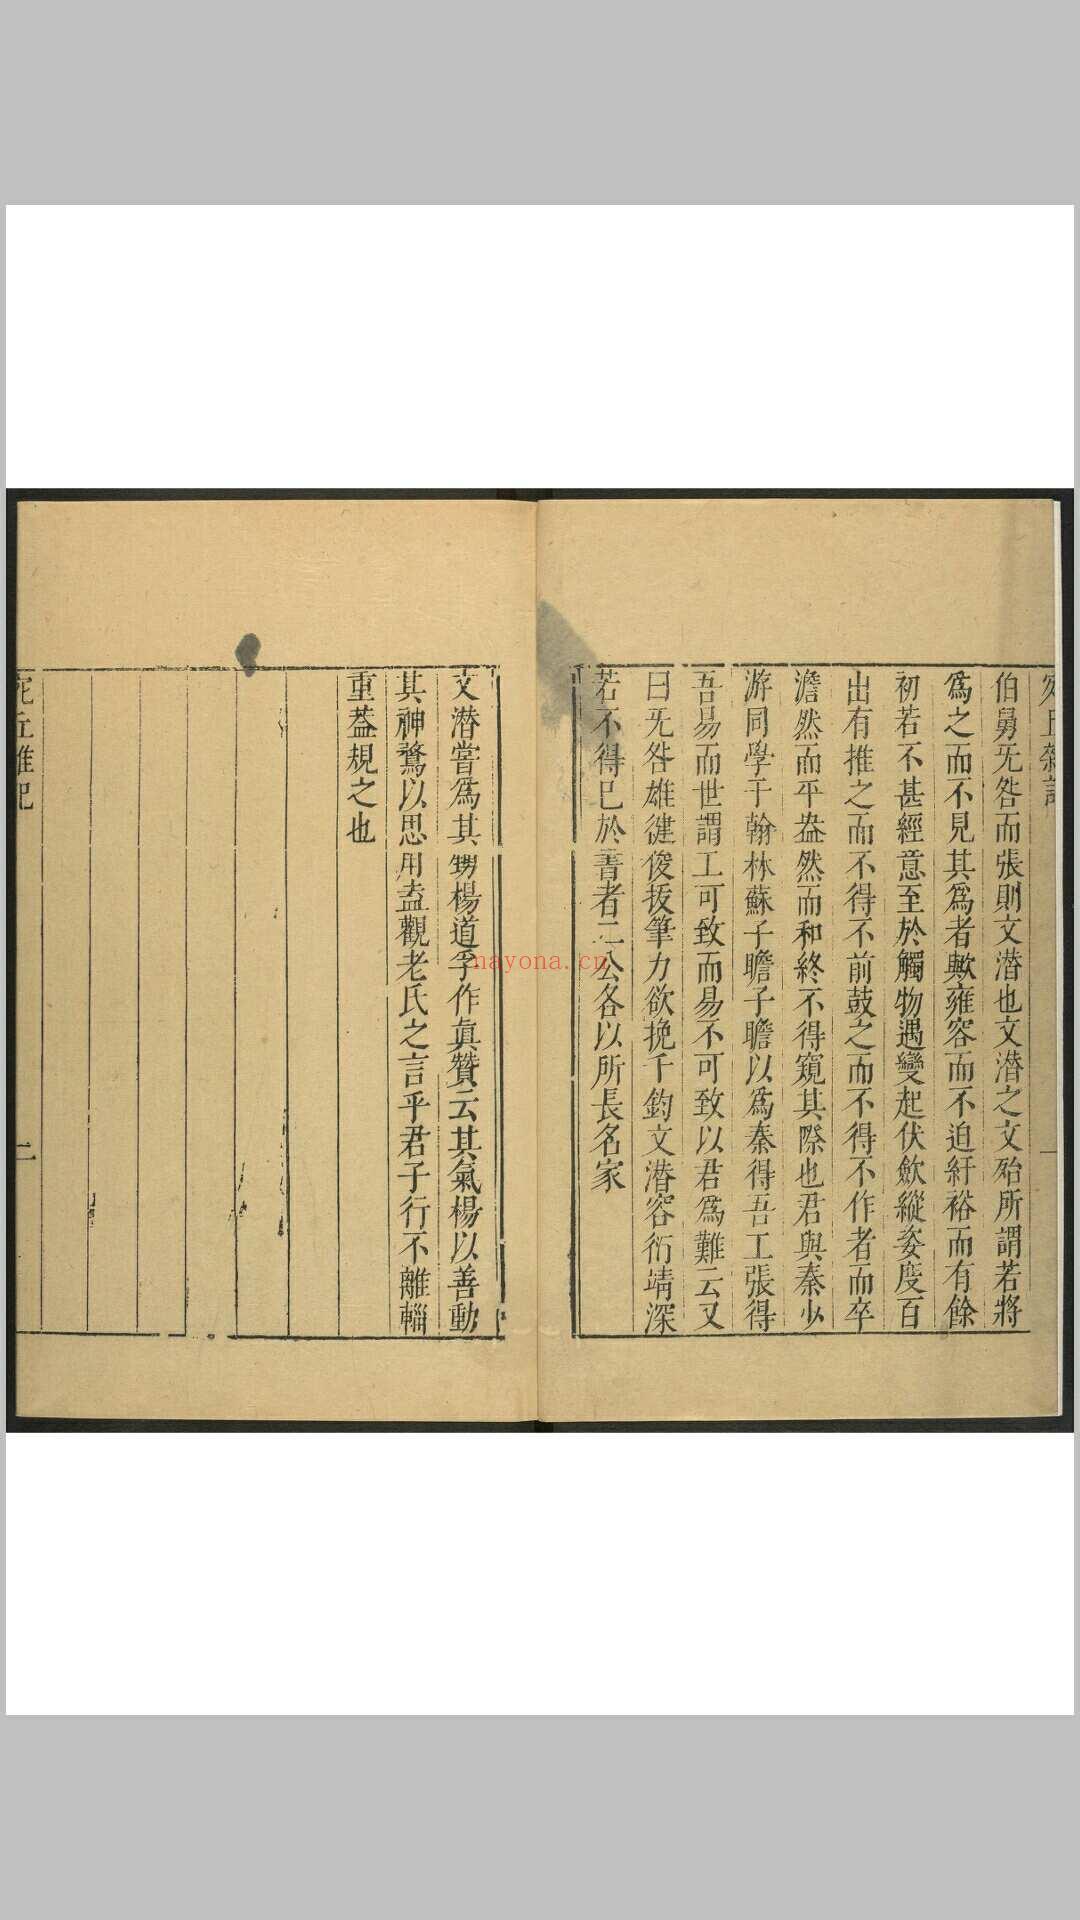 宛丘雜記
一
伯舅旡咎而張則文潛也文潛之文殆所謂若將
爲之而不見其爲者歟雍容而不迫紆裕而有餘
初若不甚經意至於觸物遇變起伏歛縱姿度百
出有推之而不得不前鼓之而不得不作者而卒
澹然而平盎然而和終不得窺其際也君與秦少
游同學于翰林蘇子瞻子瞻以爲秦得吾工張得
吾易而世謂工可致而易不可致以君爲難云又
曰旡咎雄健俊拔筆力欲挽千鈞文潛容衍靖深
若不得已於書者二公各以所長名家
文潛嘗爲其甥楊道孚作眞贊云其氣楊以善動
其神鶩以思用盍觀老氏之言乎君子行不離輜
重葢規之也
宛丘雜記
二
nayona.cn